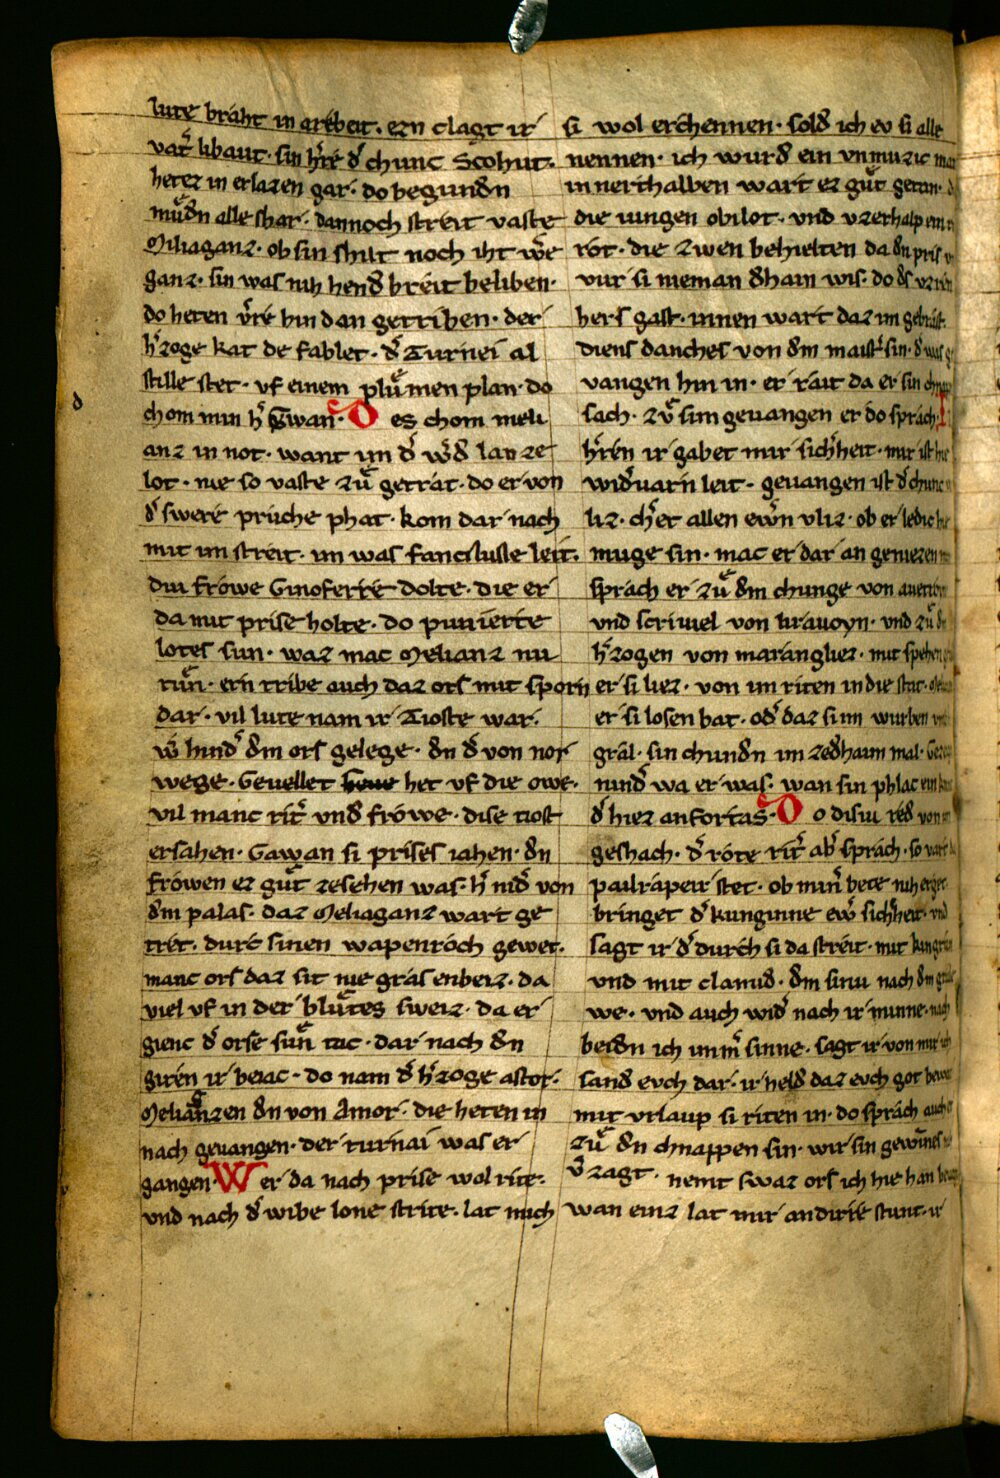 lute braht in arebeit. ern clagt ir
vat̄ libaut. sin h̄re d̄ chunc Scohut.
hetez in erlazen gar. do begundn
muͤdn alle shar. dannoch streit vaste
Miliaganz. ob sin shilt noch iht w̄e
ganz. sin was nih hend breit beliben.
do heten v̄re hin dan getriben. der
h̄zoge kat de fablet. d̄ Turnei al
stille stet. vf einem pluͤmen plan. do
chom min h̄ Gwan. D es chom meli
anz in not. want im d̄ w̄d lanze
lot. nie so vaste zuͤ getrat. do er von
d̄ swere pruche phat. kom dar nach
mit im streit. im was fancluste leit.
diu frowe Ginoferre dolte. die er
da mit prise holte. do punierte
lotes sun. waz mac Melianz nu
tuͤn. ern tribe auch daz ors mit sporn
dar. vil lute nam ir Tioste war.
w̄ hind̄ dm ors gelege. dn d̄ von nor
wege. Geuellet het vf die owe.
vil manc rit̄ vnd frowe. dise tiost
ersahen. Gawan si prises iahen. dn
frowen ez guͤt zesehen was. h̄ nid̄ von
dm palas. daz Meliaganz wart ge
tret. durc sinen wapenroch gewet.
manc ors daz sit nie gras enbeiz. da
viel vf in der bluͤtes sweiz. da er
gienc d̄ orse suͤn tac. dar nach dn
giren ir beiac. do nam d̄ h̄zoge astor.
Melianzen dn von Amor. die heten in
nach geuangen. der turnai was er
gangen. W er da nach prise wol rite.
vnd nach d̄ wibe lone strite. lat mich
si wol erchennen. sold ich ev si alle
nennen. ich wurd ein vnmuzic man
innerthalben wart ez guͤt getan.
die iungen obilot. vnd vzerhalp ein r
rot. die zwen behielten da dn pris
vur si nieman dhain wis. do ds vzren
hers gast. innen wart daz im gebrast.
diens danches von dm maist̄ sin. d̄ was g
vangen hin in. er rait da er sin chnap
sach. zuͤ sim geuangen er do sprach. I
h̄ren ir gabet mir sich̄heit. mir ist hie
wid̄uarn leit. geuangen ist d̄ chunc
liz. ch̄et allen ew̄n vliz. ob er ledic hie
muge sin. mac er dar an geniezen
sprach er zuͤ dm chunge von auen
vnd scriuiel von hrauoyn. vnd zuͤ d
h̄zogen von maranglier. mit spehen
er si liez. von im riten in die stat.
er si losen bat. od̄ daz si im wurben
gral. sin chundn im zedhaim mal.
nind̄ wa er was. wan sin phlac ein
d̄ hiez anfortas. D o disiu red von
geshach. d̄ rote rit̄ ab̄ sprach. so vart
pailrapeir stet. ob min̄ bete nih erget
bringet d̄ kunginne ew̄ sich̄heit. vnd
sagt ir d̄ durch si da streit. mit kingrun
vnd mit clamid. dm siniu nach dm gral
we. vnd auch wid̄ nach ir minne. nach
beidn ich imm̄ sinne. sagt ir von mir ich
sand evch dar. ir held daz evch got bewar
mit vrlaup si riten in. do sprach auch er
zuͤ dn chnappen sin. wir sin gewines
v̄zagt. nemt swaz ors ich hie han
wan einz lat mir andirre stunt. ir
d